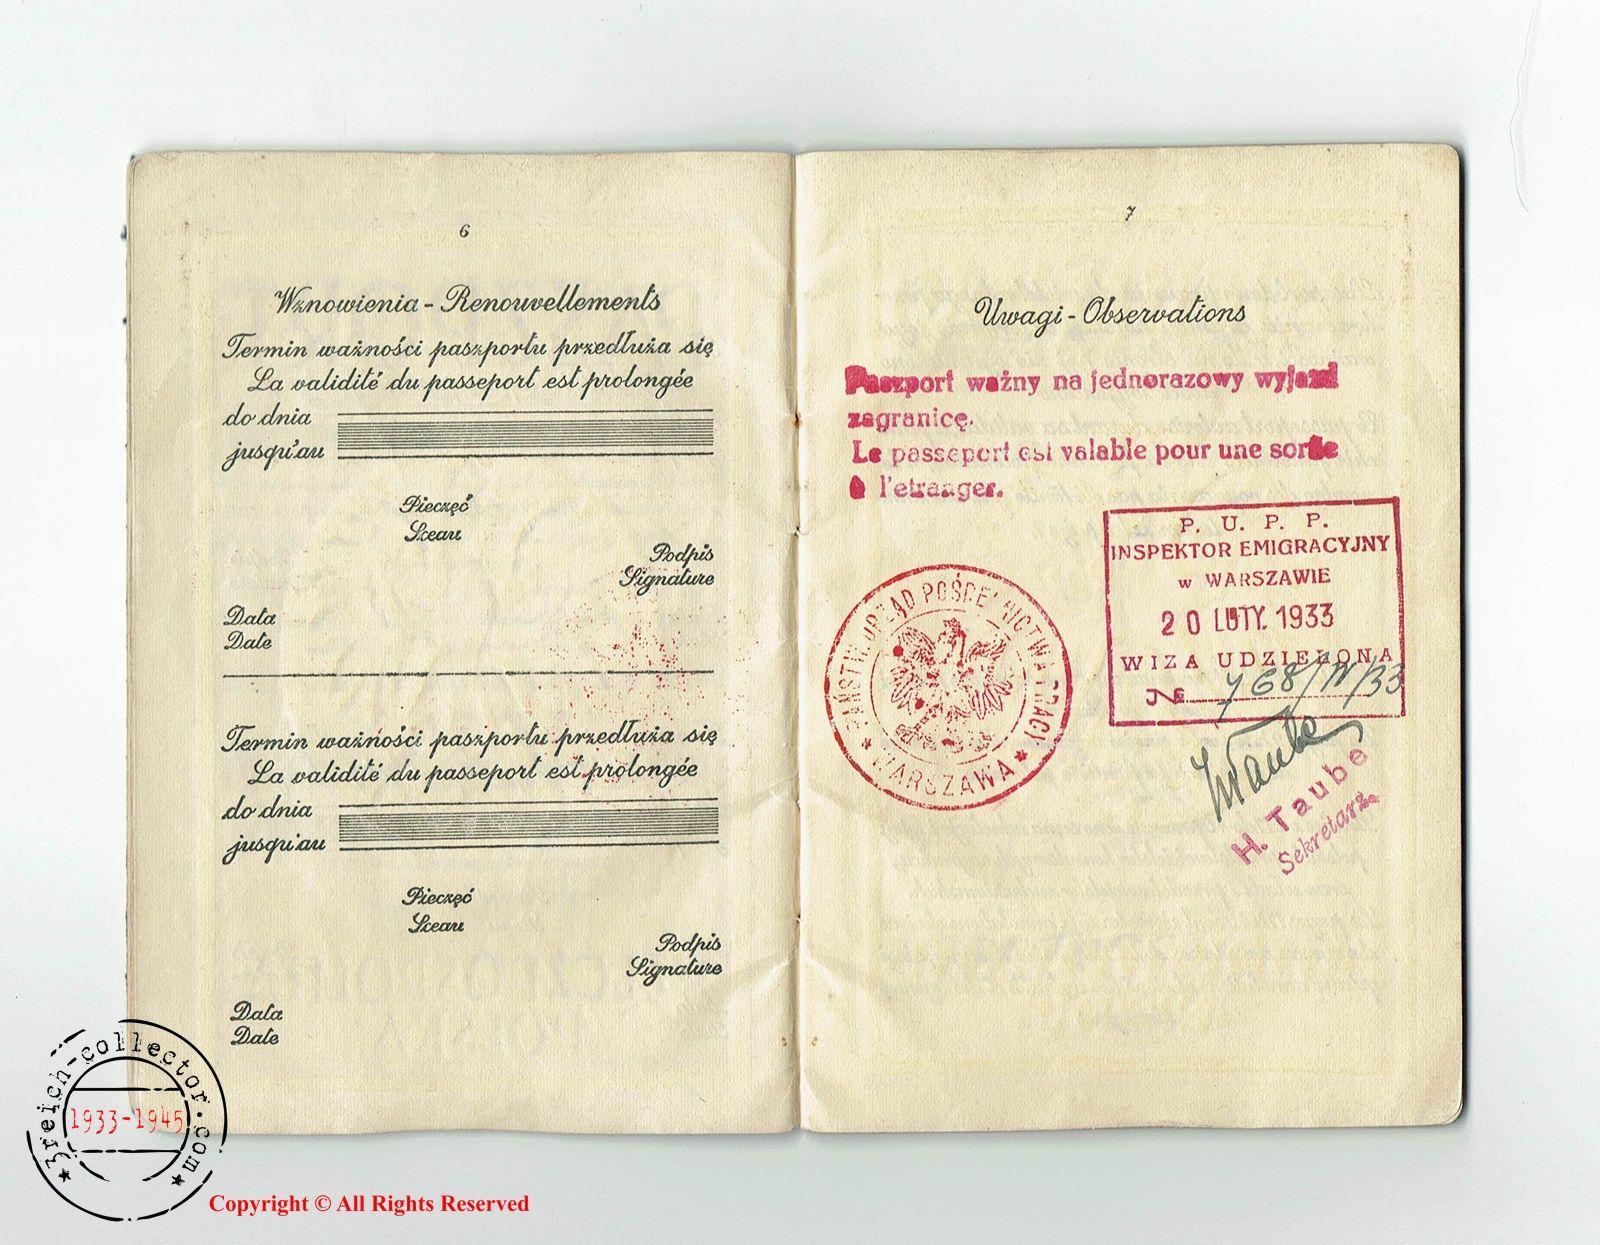 6
Wznowienia - Renouvellements
Termin ważności paszportu przedłuża się
La validité du passeport est prolongée
do dnia
jusqu'au
Pieczęć
Sceau
Podpis
Signature
Data
Date
Termin ważności paszportu przedłuża się
La validité du passeport est prolongée
do dnia
jusqu'au
Pieczęć
Sceau
Podpis
Signature
Data
Date
7
Uwagi - Observations
Paszport ważny na jednorazowy wyjazd
zagranicę.
Le passeport est valable pour une sortie
à l'etranger.
P. U. P. P.
INSPEKTOR EMIGRACYJNY
w WARSZAWIE
20 LUTY. 1933
WIZA UDZIELONA
№ 768/IV/33
PAŃSTW. URZĄD POŚREDNICTWA PRACY
* WARSZAWA *
HTaube
H. Taube
Sekretarz.
3reich-collector.com
1933-1945
Copyright © All Rights Reserved